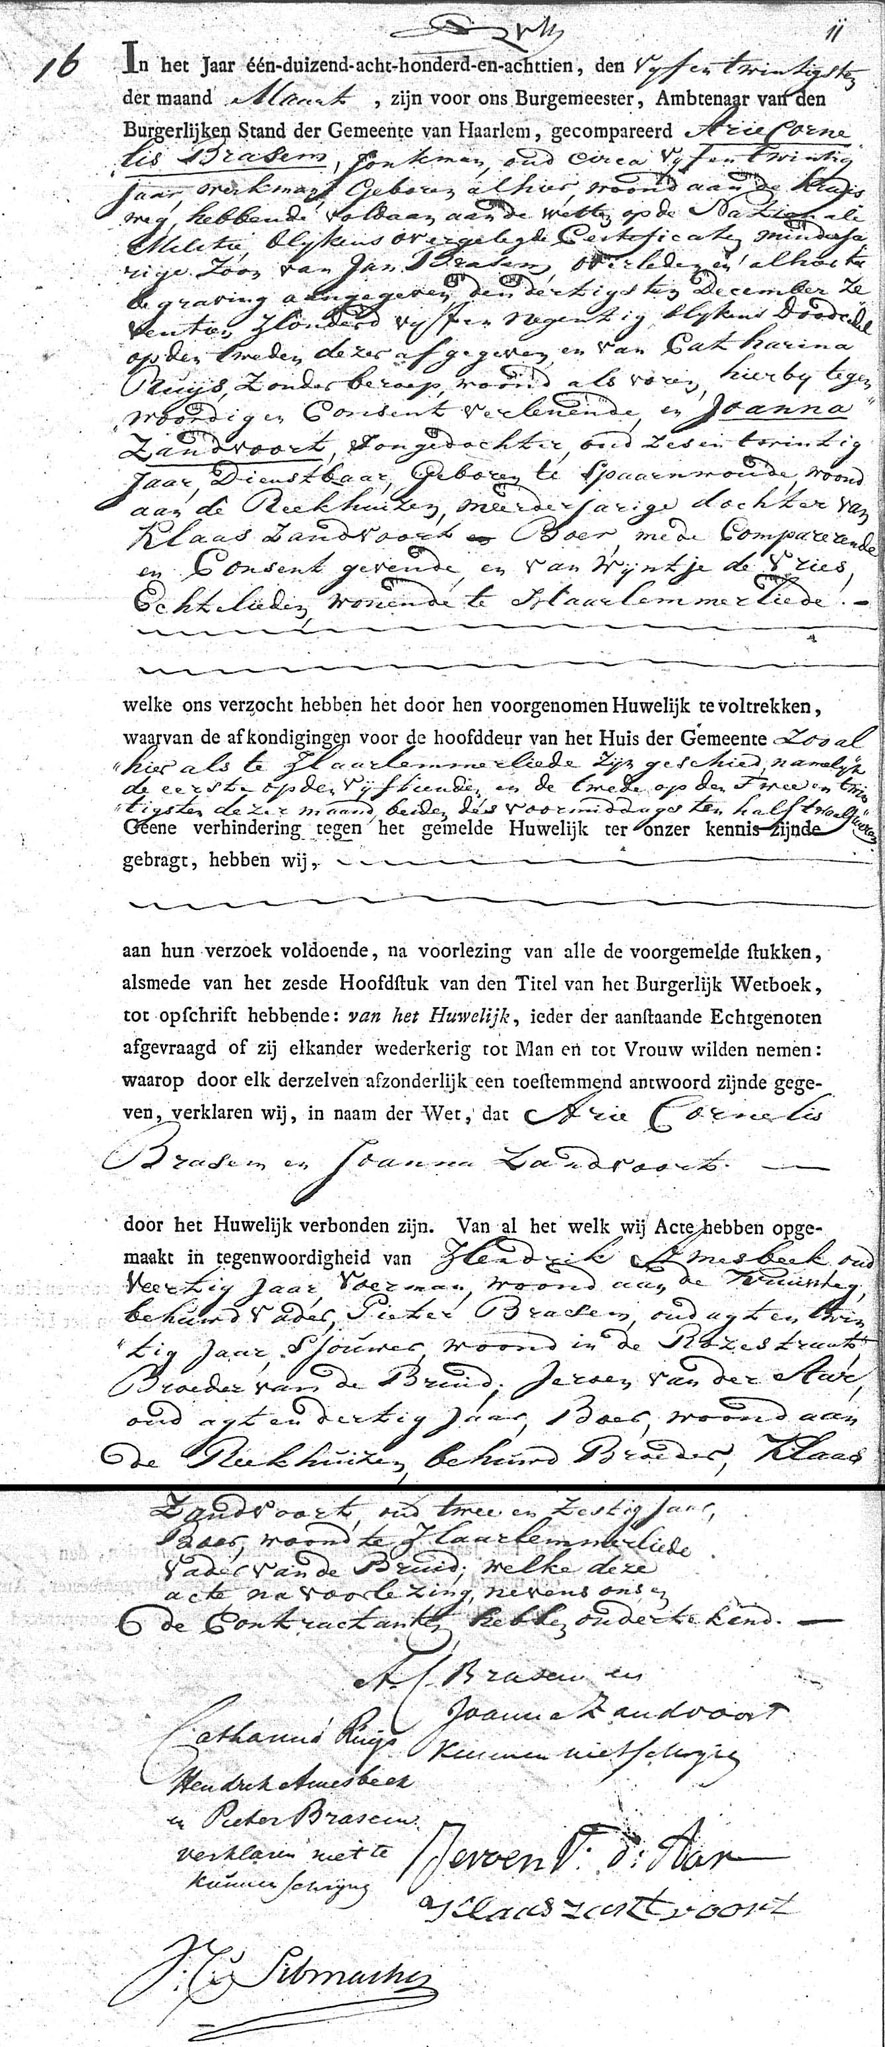 11
16
In het Jaar één-duizend-acht-honderd-en-achttien, den vyf en twintigsten
der maand Maart, zijn voor ons Burgemeester, Ambtenaar van den
Burgerlijken Stand der Gemeente van Haarlem, gecompareerd Arie Corne
lis Brasem, Jonkman, oud circa vyf en twintig
Jaar, werkman, Geboren alhier, woond aan de Kruis
weg, hebbende voldaan aan de wetten op de Nationale
Militie blykens overgelegde Certeficaten, minderja
rige Zoon van Jan Brasem, overleden en alhier ter
begraving aangegeven den dertigsten December Ze
ventien Honderd vyf en Negentig, blykens Doodcedel
op den tweden dezer afgegeven, en van Catharina
Ruijs, Zonder beroep, woond als voren, hierby tegen
"woordig en Consent verlenende, en Joanna
Zandvoort, Jongedochter, oud zes en twintig
Jaar, Dienstbaar, Geboren te Spaarnwoude, woond
aan de Reekhuizen, meerderjarige dochter van
Klaas Zandvoort Boer, mede Comparerende
en Consent gevende, en van Wyntje de Vries,
Echtelieden, wonende te Haarlemmerliede. —
welke ons verzocht hebben het door hen voorgenomen Huwelijk te voltrekken,
waarvan de afkondigingen voor de hoofddeur van het Huis der Gemeente Zo al
"hier als te Haarlemmerliede zyn geschied, namelyk
de eerste op den vyftienden en de twede op den Twee en twin
"tigsten dezer maand, beiden des voormiddags ten half twaalf uren
Geene verhindering tegen het gemelde Huwelijk ter onzer kennis zijnde
gebragt, hebben wij,
aan hun verzoek voldoende, na voorlezing van alle de voorgemelde stukken,
alsmede van het zesde Hoofdstuk van den Titel van het Burgerlijk Wetboek,
tot opschrift hebbende: van het Huwelijk, ieder der aanstaande Echtgenoten
afgevraagd of zij elkander wederkerig tot Man en tot Vrouw wilden nemen:
waarop door elk derzelven afzonderlijk een toestemmend antwoord zijnde gege-
ven, verklaren wij, in naam der Wet, dat Arie Cornelis
Brasem en Joanna Zandvoort. —
door het Huwelijk verbonden zijn. Van al het welk wij Acte hebben opge-
maakt in tegenwoordigheid van Hendrik Amesbeek oud
veertig Jaar, Voerman, woond aan de
behuwd vader, Pieter Brasem, oud agt en twin
"tig Jaar, Sjouwer, woond in de Rozestraat
Broeder van de Bruid, Jeroen van der Aar,
oud agt en dertig Jaar, Boer, woond aan
de Reekhuizen, behuwd Broeder, Klaas
Zandvoort, oud twee en Zestig Jaar,
Boer, woond te Haarlemmerliede
Vader van de Bruid; welke deze
acte, na voorlezing, nevens ons en
de Contractanten hebben ondertekend. —
A C Brasem en
Joanna Zandvoort
kunnen niet schryven
Catharina Ruijs
Hendrik Amesbeek
en Pieter Brasem
verklaren niet te
kunnen schryven
Jeroen V: d: Aar
Klaas zantvoort